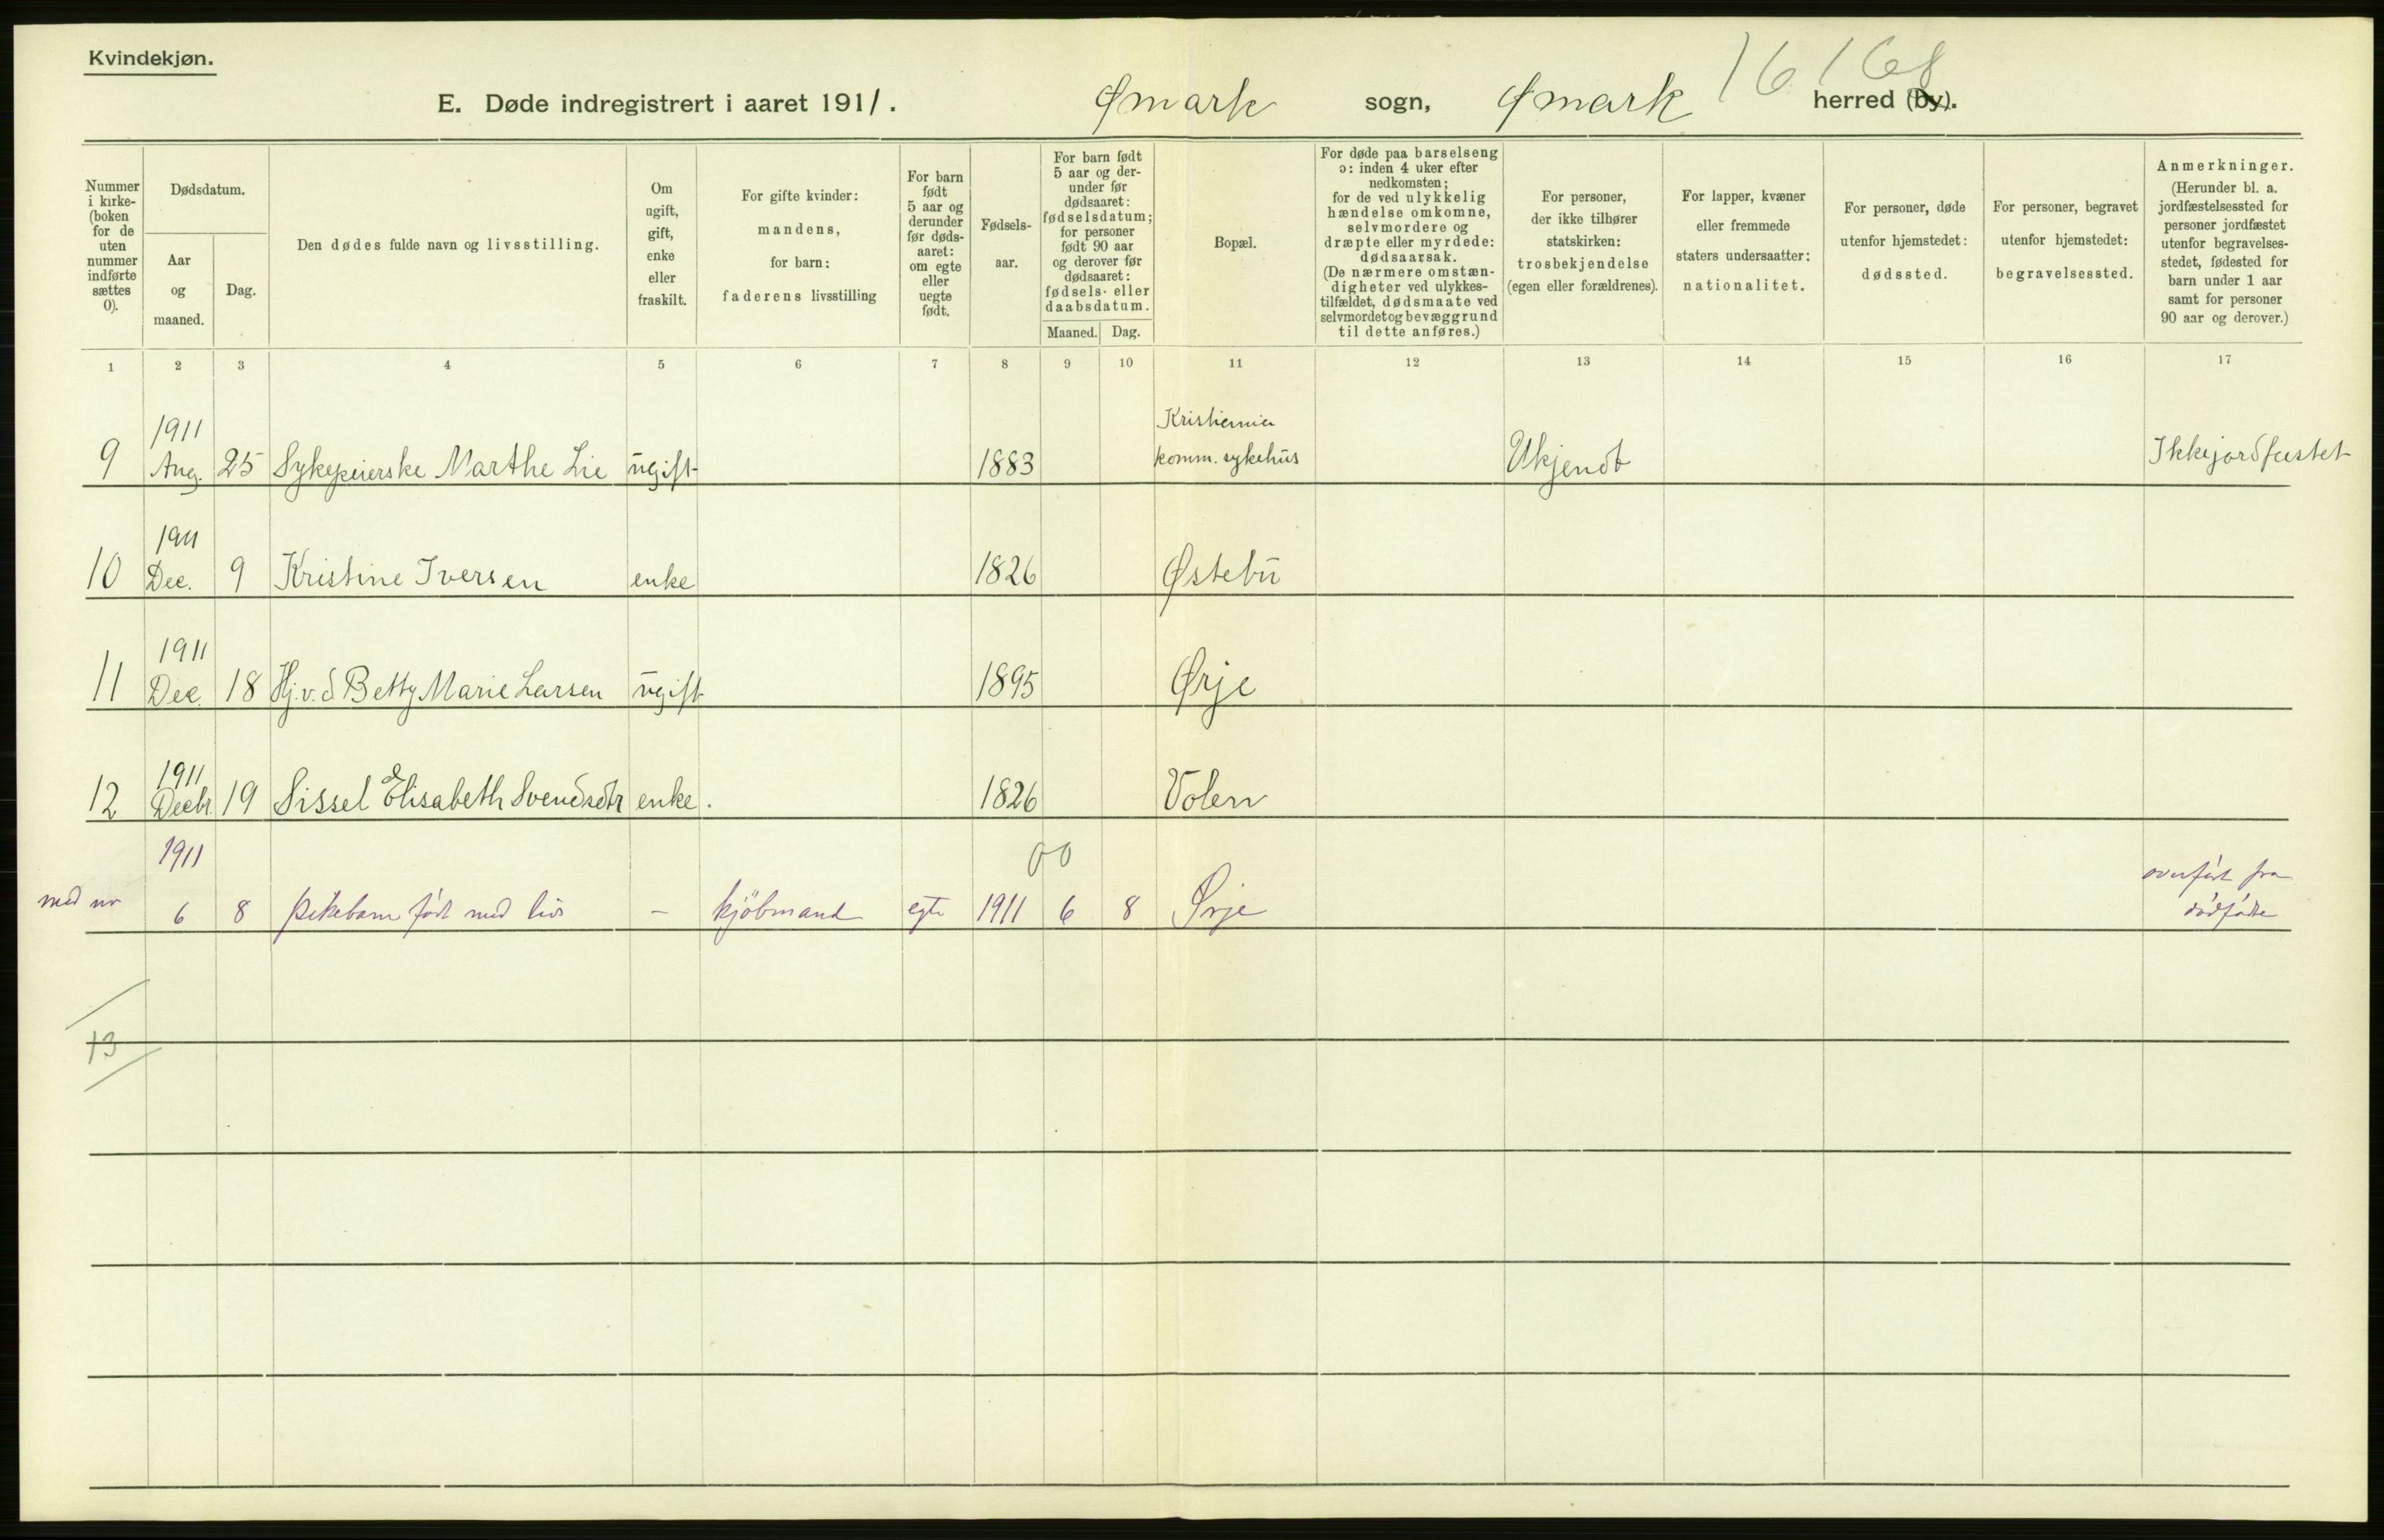 Kvindekjøn.
16168
E. Døde indregistrert i aaret 1911. Ømark sogn, Ømark herred (by).
Nummer i kirke- (boken for de uten nummer indførte sættes 0).
Dødsdatum.
Aar og maaned.
Dag.
Den dødes fulde navn og livsstilling.
Om ugift, gift, enke eller fraskilt.
For gifte kvinder: mandens, for barn: faderens livsstilling
For barn født 5 aar og derunder før døds- aaret: om egte eller uegte født.
Fødsels- aar.
For barn født 5 aar og der- under før dødsaaret: fødselsdatum; for personer født 90 aar og derover før dødsaaret: fødsels- eller daabsdatum.
Maaned. Dag.
Bopæl.
For døde paa barselseng ɔ: inden 4 uker efter nedkomsten; for de ved ulykkelig hændelse omkomne, selvmordere og dræpte eller myrdede: dødsaarsak. (De nærmere omstæn- digheter ved ulykkes- tilfældet, dødsmaate ved selvmordet og bevæggrund til dette anføres.)
For personer, der ikke tilhører statskirken: trosbekjendelse (egen eller forældrenes).
For lapper, kvæner eller fremmede staters undersaatter: nationalitet.
For personer, døde utenfor hjemstedet: dødssted.
For personer, begravet utenfor hjemstedet: begravelsessted.
Anmerkninger. (Herunder bl. a. jordfæstelsessted for personer jordfæstet utenfor begravelses- stedet, fødested for barn under 1 aar samt for personer 90 aar og derover.)
1 2 3 4 5 6 7 8 9 10 11 12 13 14 15 16 17
1911 Kristiania
9 Aug. 25 Sykepeierske Marthe Lie ugift 1883 komm. sykehus Ukjendt Ikke jordfæstet
1911
10 Dec. 9 Kristine Iversen enke 1826 Østebu
1911
11 Dec. 18 Hj.v.d Betty Marie Larsen ugift 1895 Ørje
1911
12 Decbr. 19 Sissel Elisabeth Svendsdtr enke. 1826 Volen
1911 00 overført fra
med nr 6 8 pikebarn født med liv - kjøbmand egte 1911 6 8 Ørje dødfødte
13